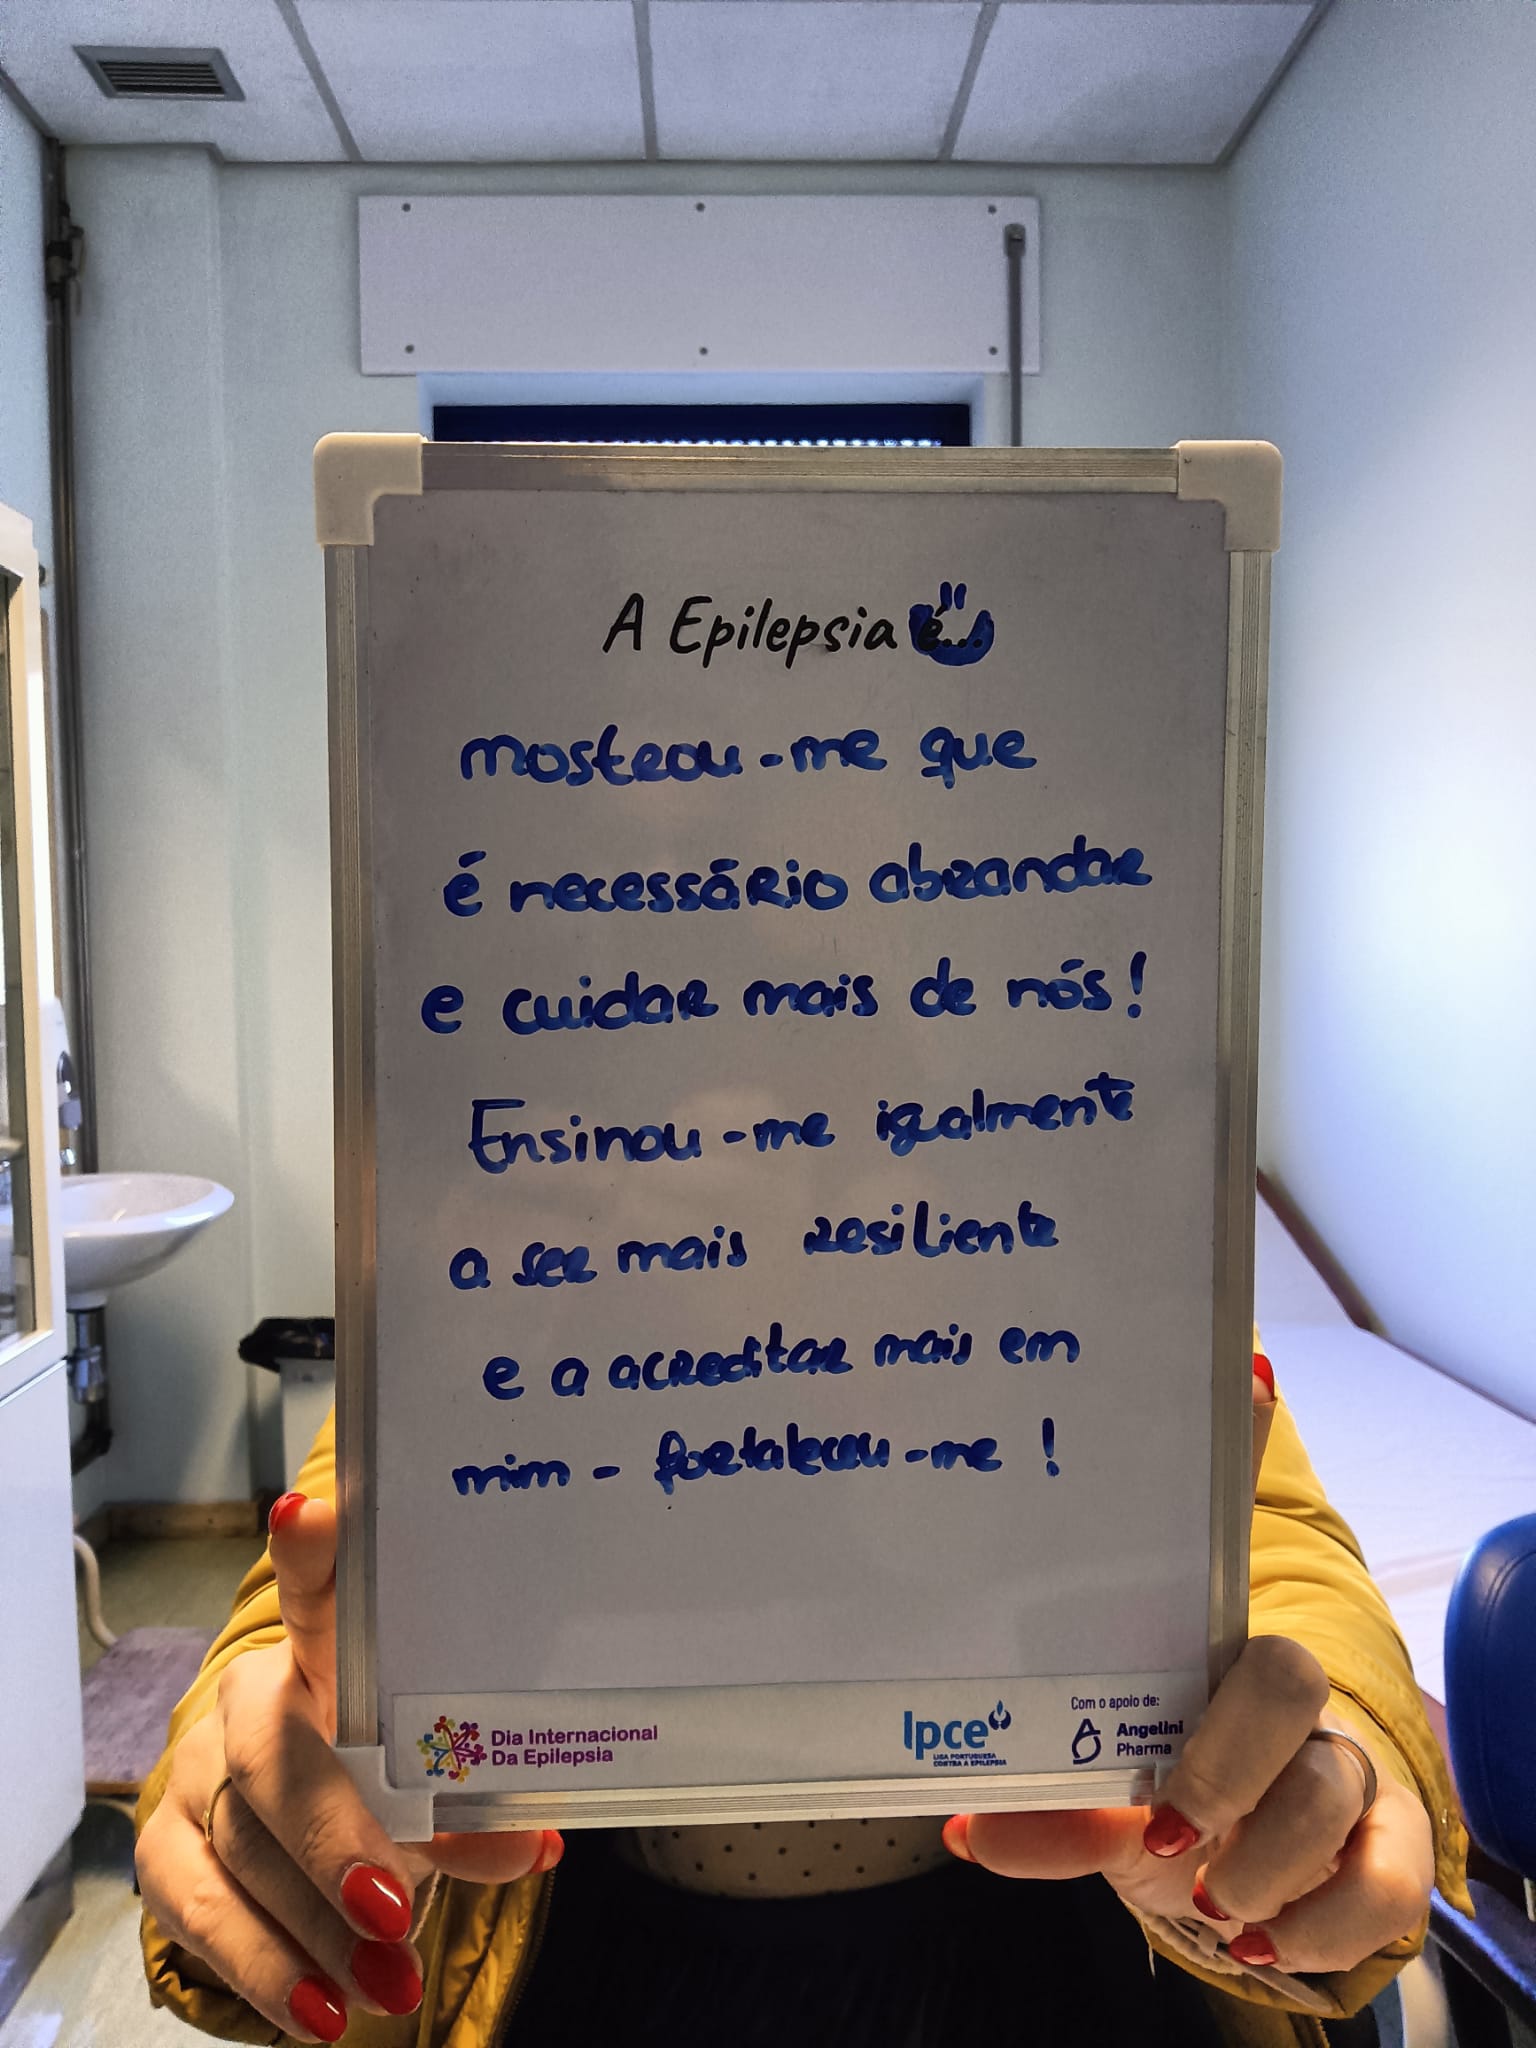 A Epilepsia é...
mostrou-me que
é necessário abrandar
e cuidar mais de nós!
Ensinou-me igualmente
a ser mais resiliente
e a acreditar mais em
mim - fortaleceu-me !
Dia Internacional
Da Epilepsia
lpce
LIGA PORTUGUESA
CONTRA A EPILEPSIA
Com o apoio de:
Angelini
Pharma